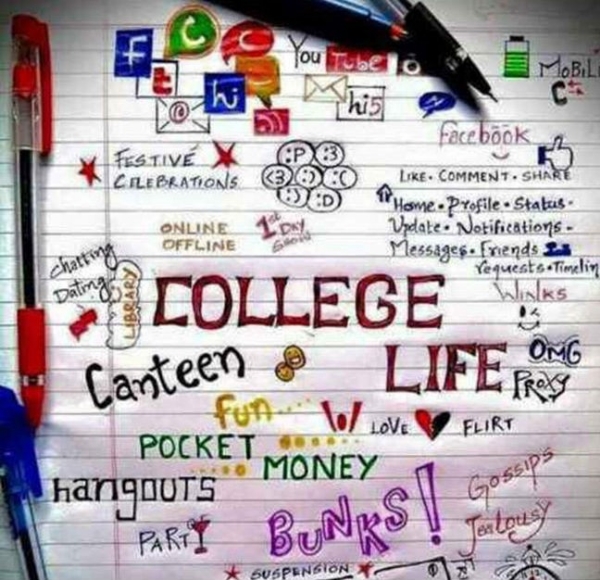 f
t
hi
You Tube
hi5
MOBILI
Facebook
FESTIVE
CELEBRATIONS
:P :3
<3 :) :(
:) :D
LIKE. COMMENT. SHARE
Home. Profile. Status.
Update. Notifications.
Messages. Friends
requests. Timelin
ONLINE
OFFLINE
1st DAY SHOW
Chatting
Dating
LIBRARY
COLLEGE
LIFE
WINKS
OMG
PROXY
Canteen
fun....
LOVE
FLIRT
POCKET
MONEY
hangouts
PARTY
BUNKS!
Gossips
Jealousy
SUSPENSION